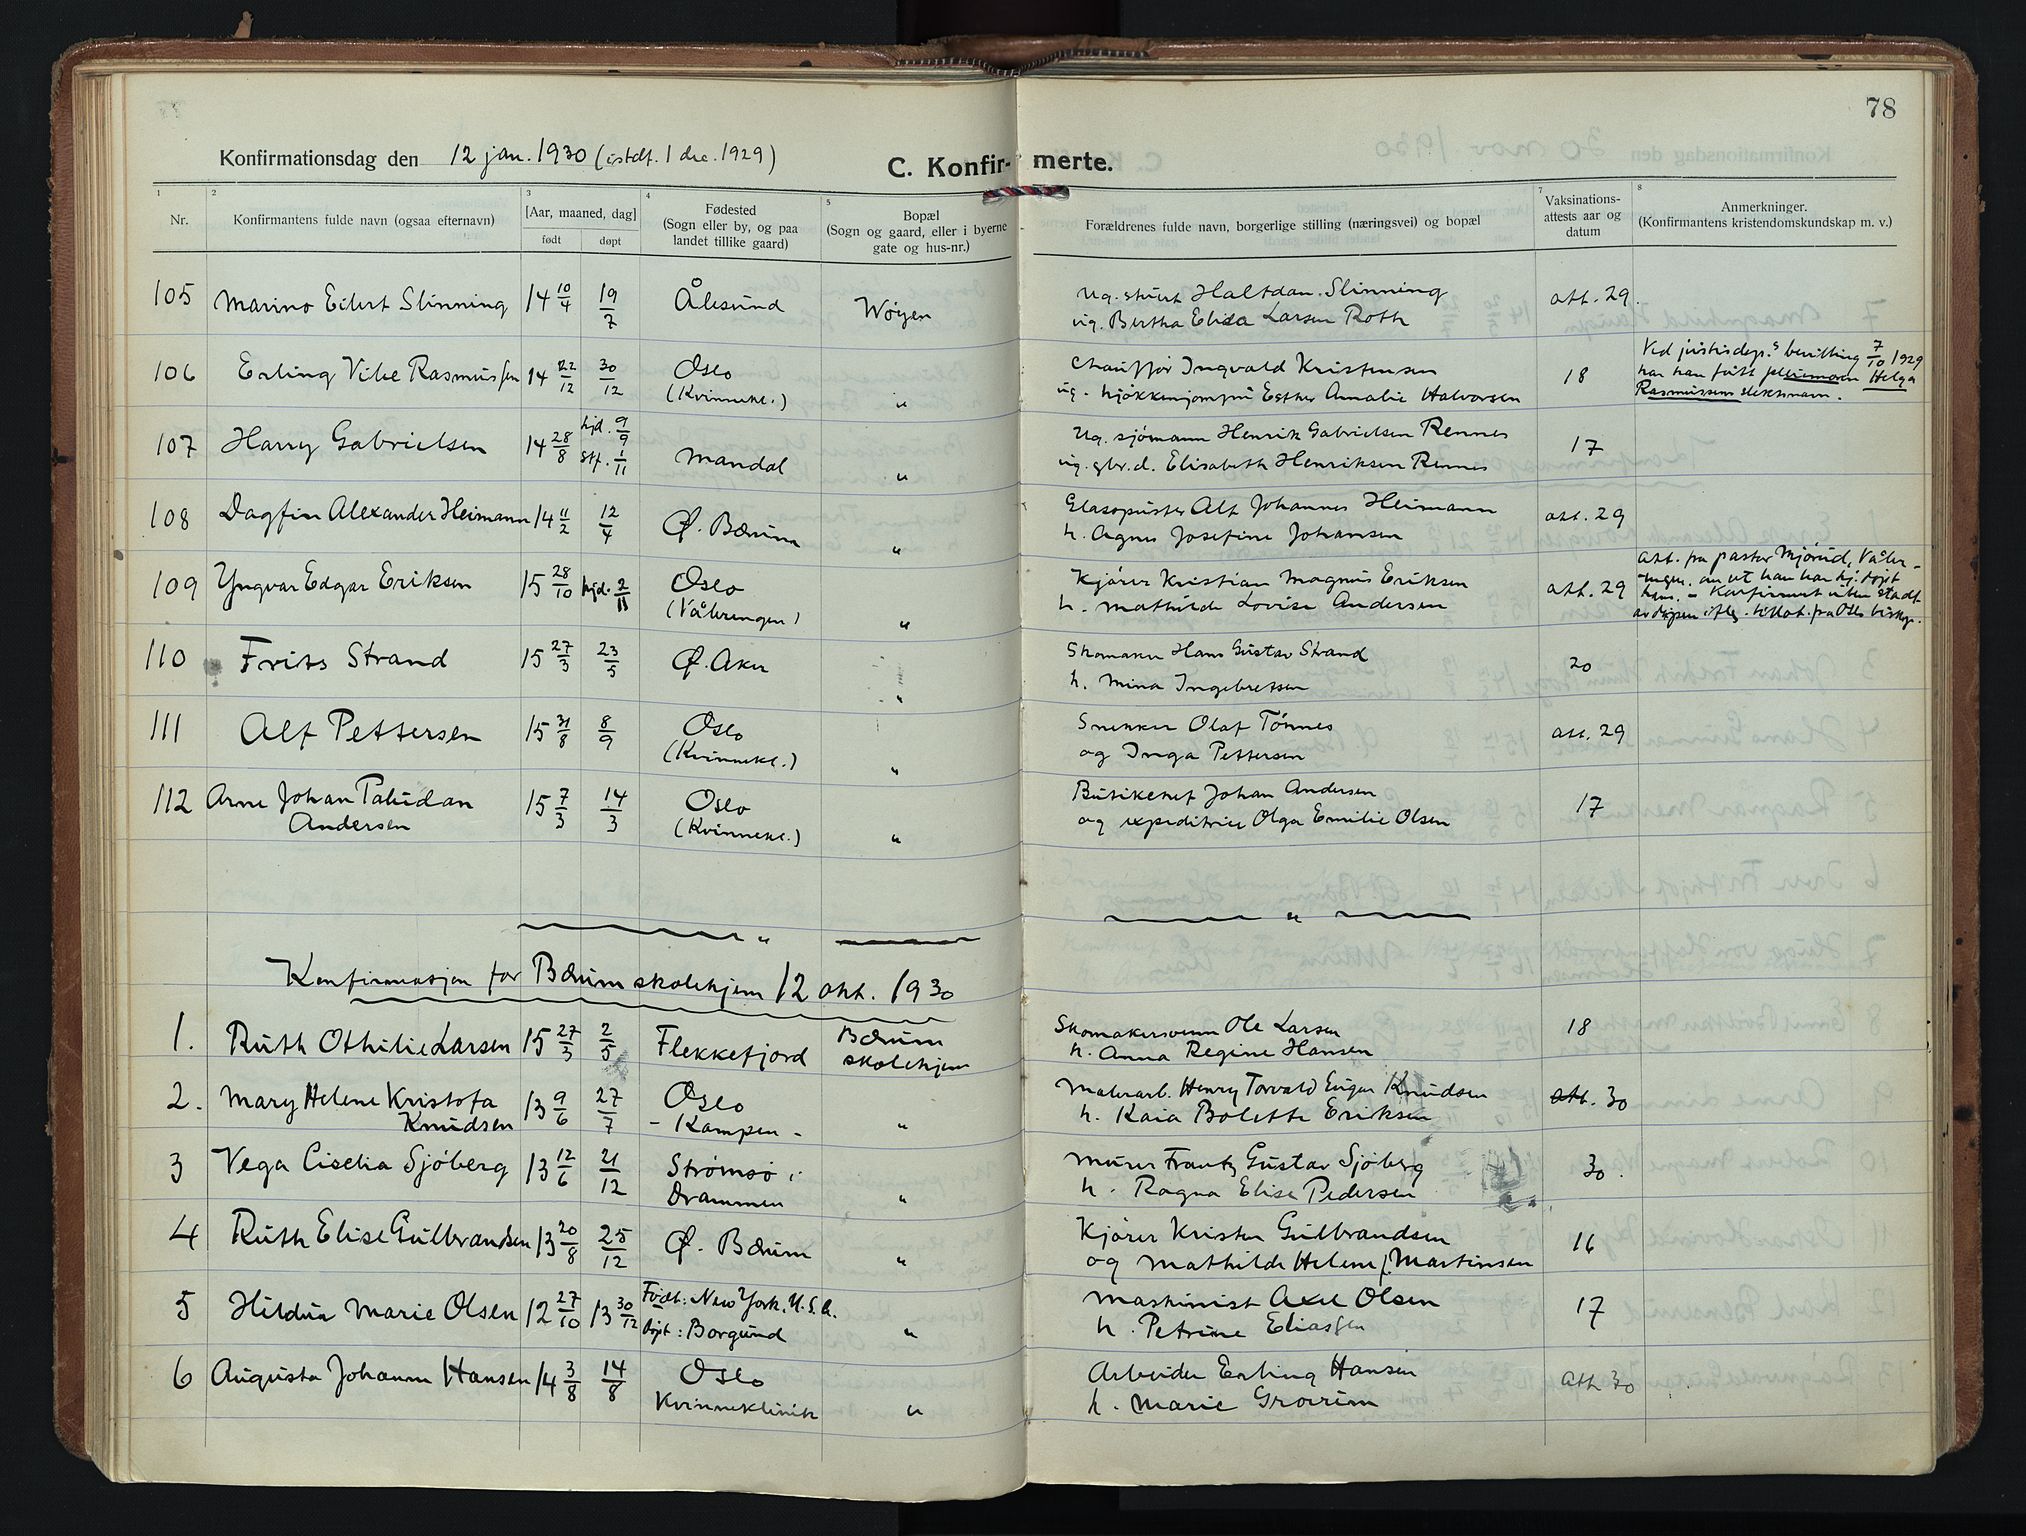 78
Konfirmationsdag den 12 jan. 1930 (istdf. 1 dec. 1929)
C. Konfirmerte.
1 2 3 4 5 7 8
Nr.
Konfirmantens fulde navn (ogsaa efternavn)
[Aar, maaned, dag]
født døpt
Fødested
(Sogn eller by, og paa
landet tillike gaard)
Bopæl
(Sogn og gaard, eller i byerne
gate og hus-nr.)
Forældrenes fulde navn, borgerlige stilling (næringsvei) og bopæl
Vaksinations-
attests aar og
datum
Anmerkninger.
(Konfirmantens kristendomskundskap m. v.)
105 Marino Eilert Slinning 14 10/4 19/7 Ålesund Wøyen
Ug. stuert Halfdan Slinning
ug. Bertha Elisa Larsen Roth
att. 29.
106 Erling Vibe Rasmussen 14 22/12 30/12 Oslo
(Kvinnekl.) "
Chauffør Ingvald Kristensen
ug. kjøkkenjomfru Esther Amalie Halvorsen
18
Ved justisdep.s bevilling 7/10 1929
har han fått pleiemoren Helga
Rasmussens slektsnavn.
107 Harry Gabrielsen 14 28/8 hjd. 9/9
stf. 1/11 Mandal "
Ug. sjømann Henrik Gabrielsen Rennes
ug. gbr.d. Elisabeth Henriksen Rennes
17
108 Dagfin Alexander Heimann 14 11/2 12/4 Ø. Bærum "
Glasspuster Alf Johannes Heimann
h. Agnes Josefine Johansen
att. 29
109 Yngvar Edgar Eriksen 15 28/10 hjd. 2/11 Oslo
(Vålerengen) "
Kjører Kristian Magnus Eriksen
h. Mathilde Lovise Andersen
att. 29
Att. fra pastor Mjørud, Våler-
engen, om at han har hj. døpt
ham. - Konfirmert uten stadf.
av dåpen iflg. tillat. fra Oslo biskop.
110 Frits Strand 15 27/3 23/5 Ø. Aker "
Skomaker Hans Gustav Strand
h. Mina Ingebretsen
20
111 Alf Pettersen 15 31/8 8/9 Oslo
(Kvinnekl.) "
Snekker Olaf Tønnes
og Inga Pettersen
att. 29
112 Arne Johan Paludan
Andersen 15 7/3 14/3 Oslo
(Kvinnekl.) "
Butikchef Johan Andersen
og expeditrice Olga Emilie Olsen
17
" "
Konfirmasjon for Bærum skolehjem 12 okt. 1930
1. Ruth Othilie Larsen 15 27/3 2/5 Flekkefjord Bærum
skolehjem
Skomakersvenn Ole Larsen
h. Anna Regine Hansen
18
2. Mary Helene Kristofa
Knudsen 13 9/6 27/7 Oslo
- Kampen - "
Malerarb. Henry Torvald Eugen Knudsen
h. Kaia Bolette Eriksen
att. 30
3 Vega Cicelia Sjöberg 13 12/6 21/12 Strømsø i
Drammen "
Murer Frantz Gustav Sjöberg
h. Ragna Elise Pedersen
30.
4 Ruth Elise Gulbrandsen 13 20/8 25/12 Ø. Bærum "
Kjører Kristen Gulbrandsen
og Mathilde Helene f. Martinsen
16
5 Hildur Marie Olsen 12 27/10 13 30/12 Født: New York, U.S.A.
Døpt: Borgund "
Maskinist Axel Olsen
h. Petrine Eliassen
17
6 Augusta Johanne Hansen 14 3/8 14/8 Oslo
Kvinneklinik "
Arbeider Erling Hansen
h. Marie Grorum
Att 30